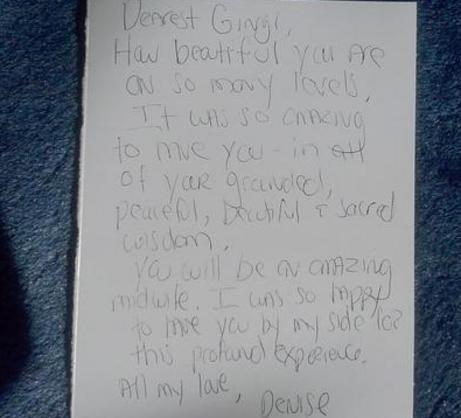 Dearest Gingi,
How beautiful you are
on so many levels.
It was so amazing
to have you - in all
of your grounded,
peaceful, beautiful & sacred
wisdom.
You will be an amazing
midwife. I was so happy
to have you by my side for
this profound experience.
All my love,
Denise